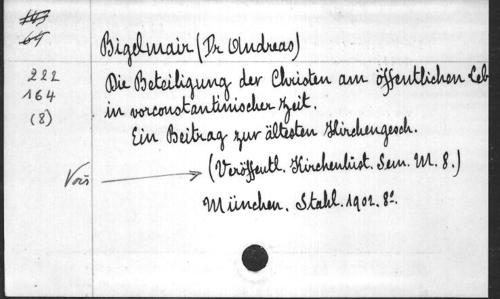 Bigelmair (Dr Andreas)
222
164
(8)
Die Beteiligung der Christen am öffentlichen Leb
in vorconstantinischer Zeit.
Ein Beitrag zur ältesten Kirchengesch.
Vois
(Veröffentl. Kirchenhist. Sem. M. 8.)
München. Stahl. 1902. 8º.